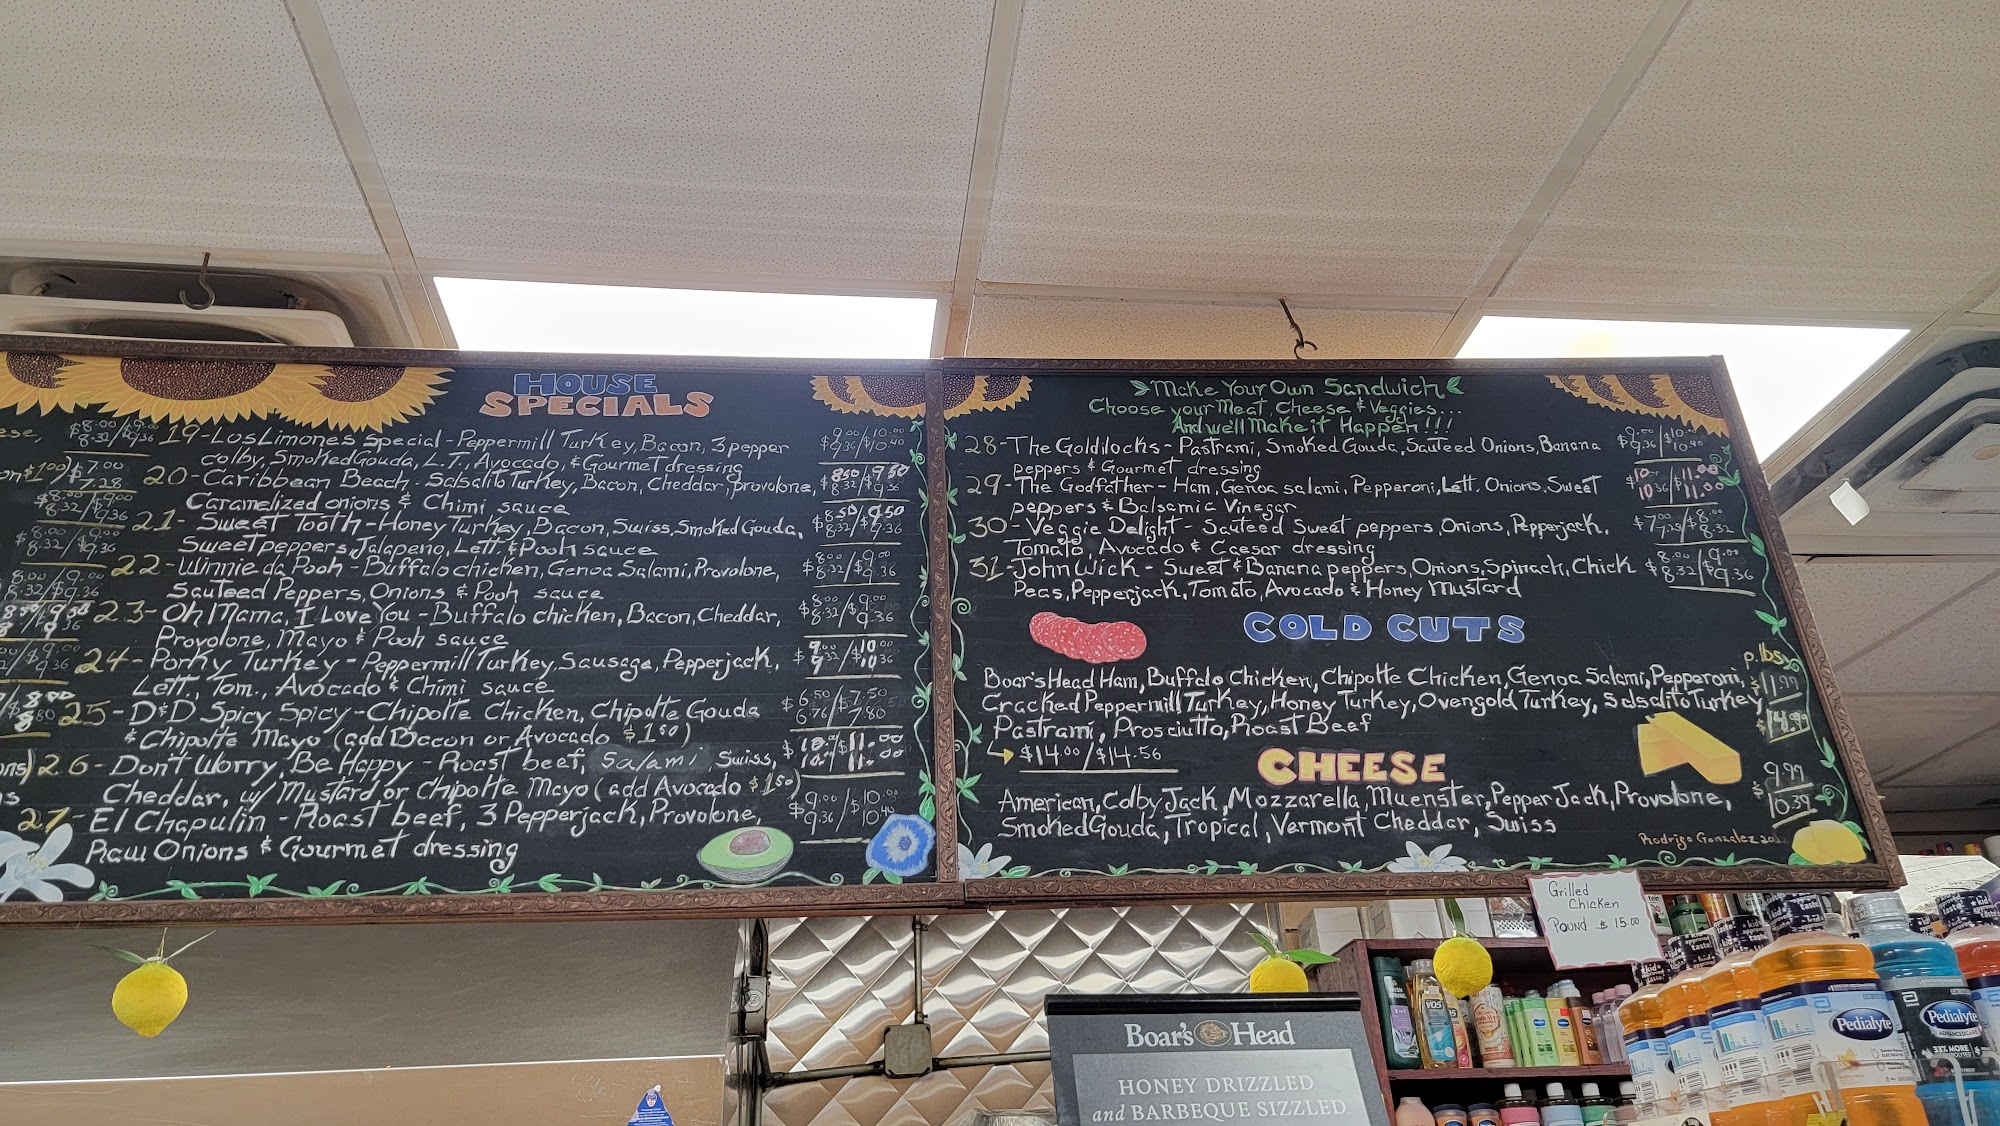 HOUSE
SPECIALS
$8.00/$9.00
8.32/$9.36
$7.00
7.28
$8.00/$9.00
8.32/$9.36
8.00/$9.00
8.32/$9.36
8.00/$9.00
8.32/$9.36
19-Los Limones Special-Peppermill Turkey, Bacon, 3 pepper
Colby, Smoked Gouda, L.T., Avocado, & Gourmet dressing
$9.00/$10.00
9.36/$10.40
20-Caribbean Beach-Salsalito Turkey, Bacon, Cheddar, provolone,
Caramelized onions & Chimi sauce
$8.50/9.50
21-Sweet Tooth-Honey Turkey, Bacon, Swiss, Smoked Gouda,
Sweet peppers, Jalapeno, Lett. & Pooh sauce
$8.50/9.50
22-Winnie da Pooh-Buffalo chicken, Genoa Salami, Provolone,
Sauteed Peppers, Onions & Pooh sauce
$8.00/$9.00
8.32/$9.36
23-Oh Mama, I Love You-Buffalo chicken, Bacon, Cheddar,
Provolone, Mayo & Pooh sauce
$8.00/$9.00
8.32/$9.36
24-Porky Turkey-Peppermill Turkey, Sausage, Pepperjack,
Lett., Tom., Avocado & Chimi sauce
25-D&D Spicy Spicy-Chipotle Chicken, Chipotle Gouda
& Chipotle Mayo (add Bacon or Avocado $1.50)
$6.50/$7.50
6.76/$7.80
26-Don't Worry, Be Happy-Roast beef, Salami, Swiss,
Cheddar, w/ Mustard or chipotle Mayo (add Avocado $1.50)
27-El Chapulin-Roast beef, 3 Pepperjack, Provolone,
Raw Onions & Gourmet dressing
$9.00/$10.00
9.36/$10.40
Make Your Own Sandwich
Choose your Meat, Cheese & Veggies...
And well Make it Happen!!!
28-The Goldilocks-Pastrami, Smoked Gouda, Sauteed Onions, Banana
peppers & Gourmet dressing
$9.00/$10.00
9.36/$10.40
29-The Godfather-Ham, Genoa salami, Pepperoni, Lett. Onions, Sweet
peppers & Balsamic Vinegar
30-Veggie Delight-Sauteed Sweet peppers, Onions, Pepperjack,
Tomato, Avocado & Caesar dressing
$7.00/$8.00
7.28/$8.32
31-John Wick-Sweet & Banana peppers, Onions, Spinach, Chick
Peas, Pepperjack, Tomato, Avocado & Honey Mustard
$8.00/$9.00
8.32/$9.36
COLD CUTS
p.lbs
Boar's Head Ham, Buffalo Chicken, Chipotle Chicken, Genoa Salami, Pepperoni,
Cracked Peppermill Turkey, Honey Turkey, Ovengold Turkey, Salsalito Turkey,
Pastrami, Prosciutto, Roast Beef
$14.00/$14.56
CHEESE
American, Colby Jack, Mozzarella, Muenster, Pepper Jack, Provolone,
Smoked Gouda, Tropical, Vermont Cheddar, Swiss
9.99
10.39
Rodrigo Gonzalez
Grilled
Chicken
Pound $15.00
Boar's Head
HONEY DRIZZLED
and BARBEQUE SIZZLED
VO5
Pedialyte
Pedialyte
33% MORE